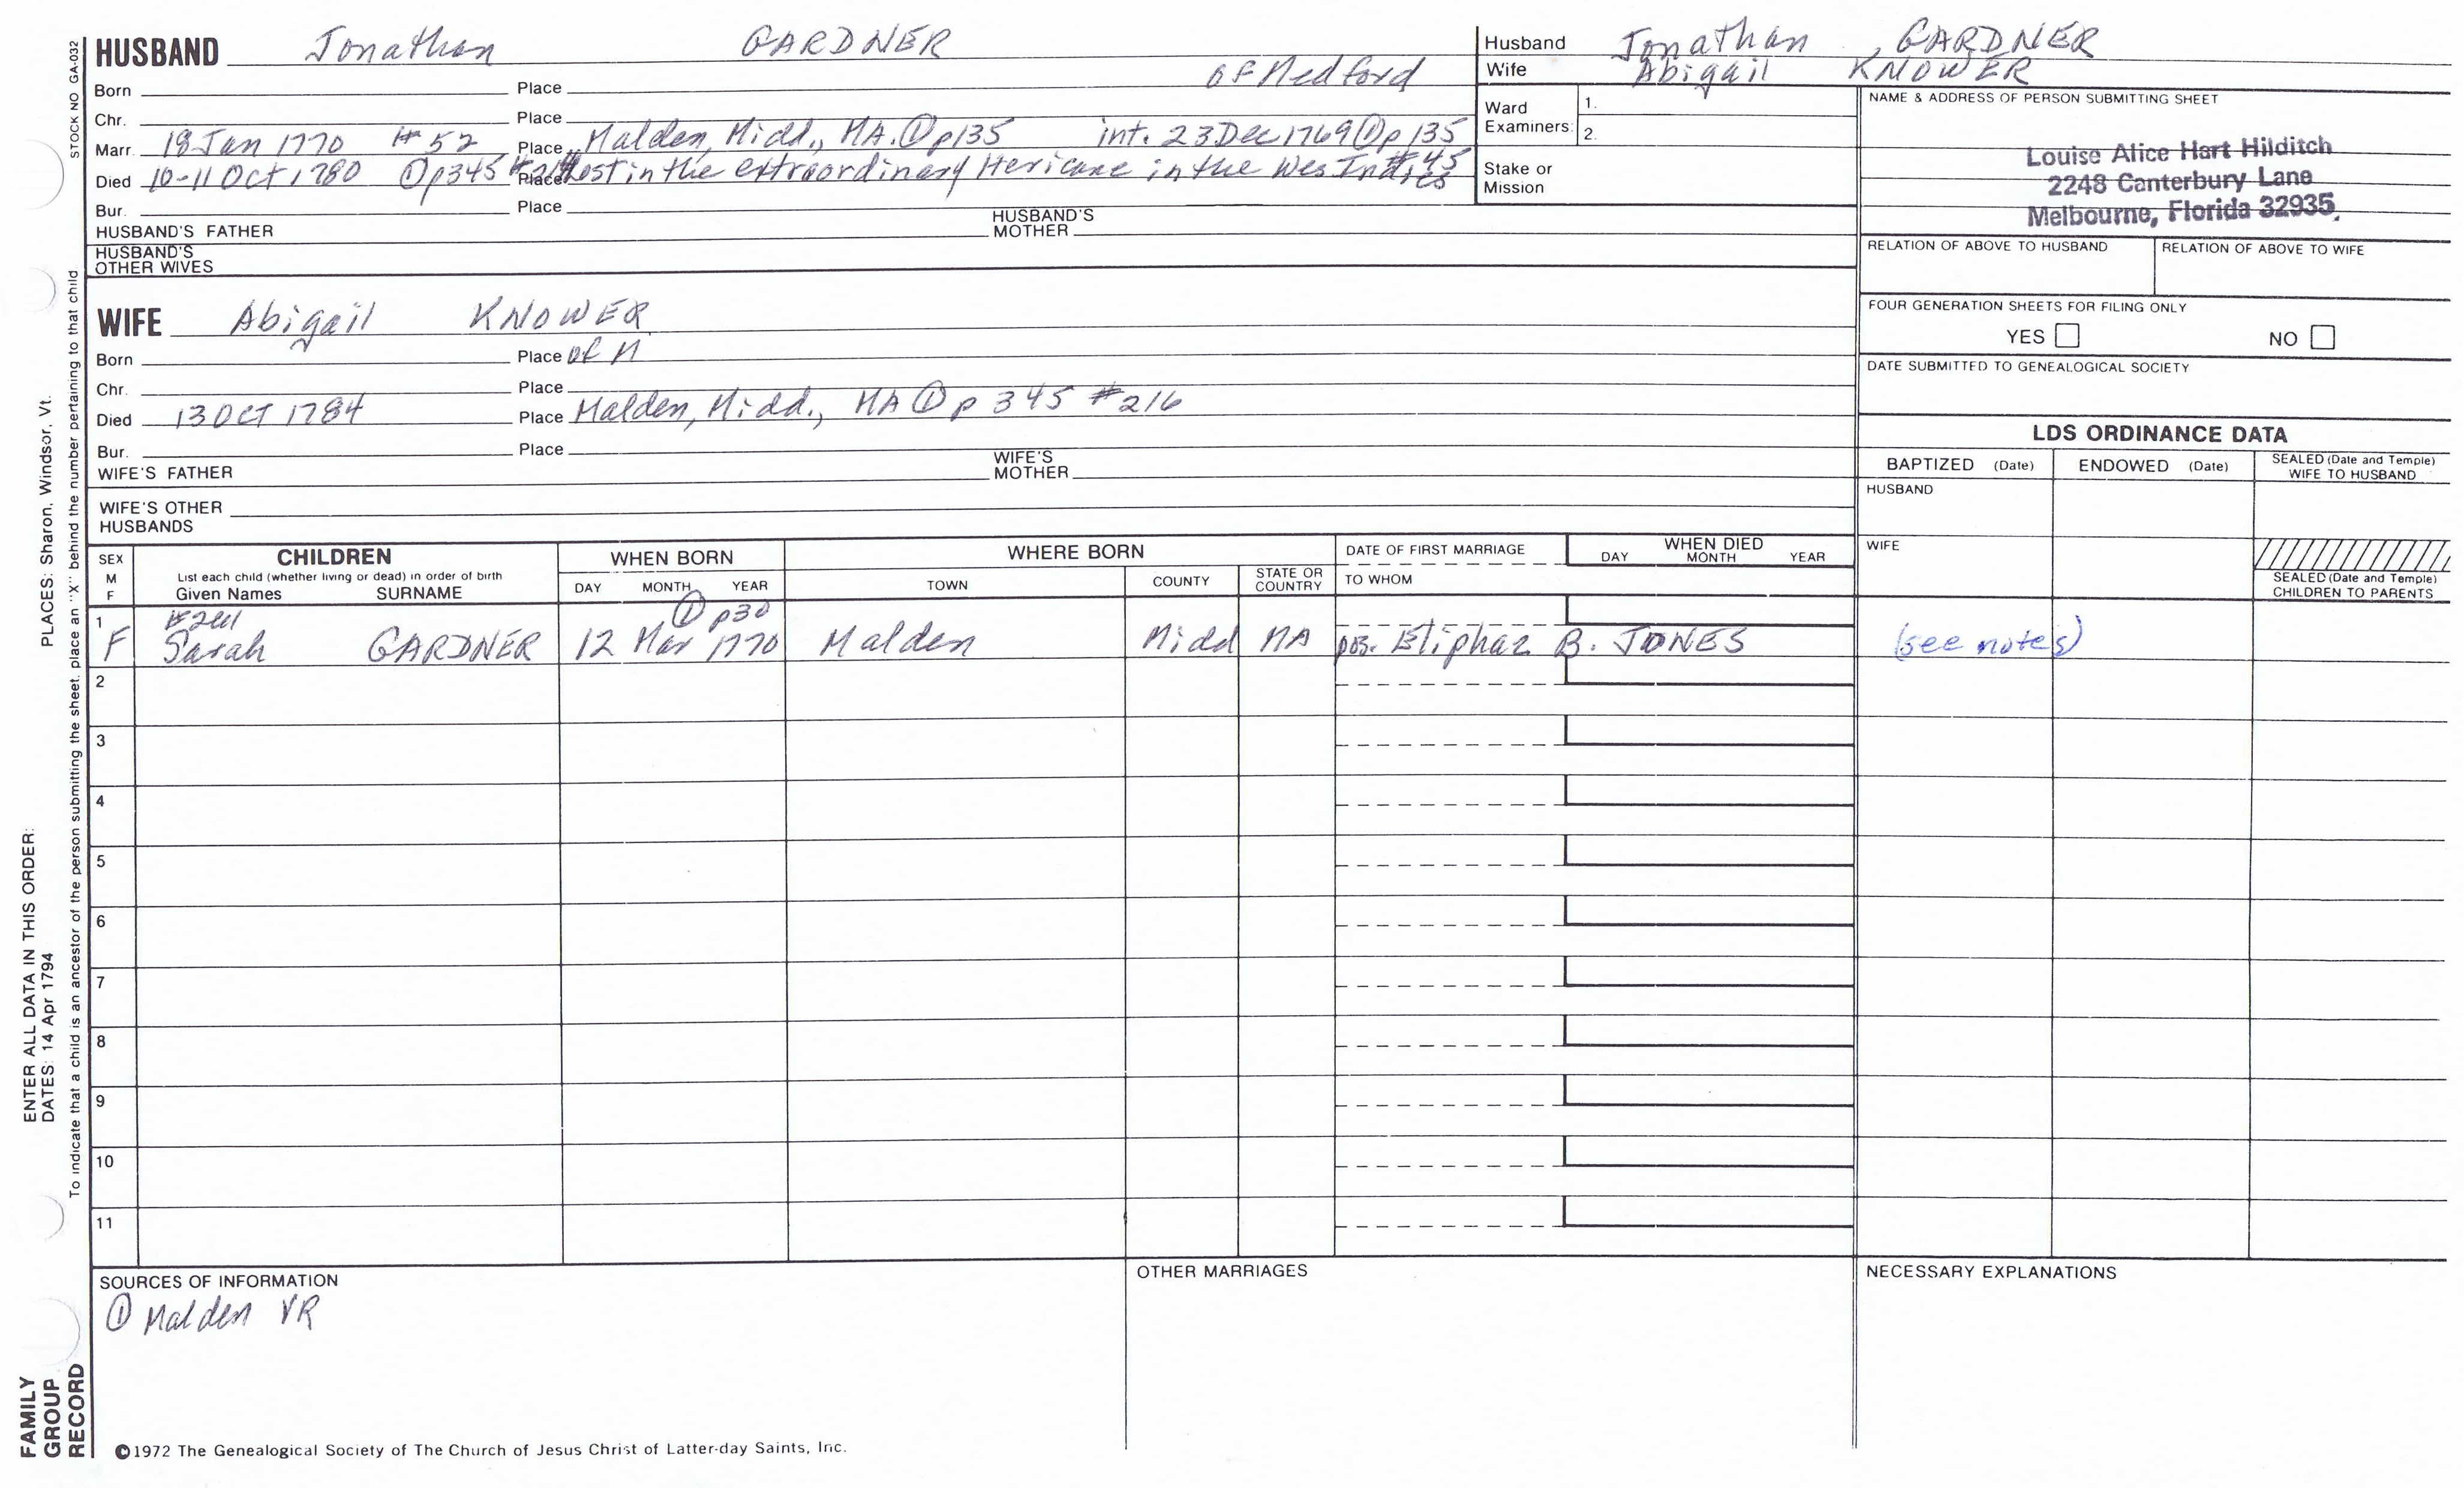 HUSBAND Jonathan GARDNER
Born Place of Medford
Chr. Place
Marr. 18 Jan 1770 #52 Place Malden, Midd., MA. ① p135 int. 23 Dec 1769 ① p135
#45
Died 10-11 Oct 1780 ① p345 Place lost in the extraordinary Hericane in the Wes Indies
Bur. Place
HUSBAND'S FATHER HUSBAND'S MOTHER
HUSBAND'S OTHER WIVES
Husband Jonathan, GARDNER
Wife Abigail KNOWER
Ward Examiners: 1.
2.
Stake or Mission
NAME & ADDRESS OF PERSON SUBMITTING SHEET
Louise Alice Hart Hilditch
2248 Canterbury Lane
Melbourne, Florida 32935.
RELATION OF ABOVE TO HUSBAND RELATION OF ABOVE TO WIFE
FOUR GENERATION SHEETS FOR FILING ONLY
YES NO
DATE SUBMITTED TO GENEALOGICAL SOCIETY
WIFE Abigail KNOWER
Born Place of M
Chr. Place
Died 13 Oct 1784 Place Malden, Midd., MA ① p 345 #216
Bur. Place
WIFE'S FATHER WIFE'S MOTHER
WIFE'S OTHER HUSBANDS
LDS ORDINANCE DATA
BAPTIZED (Date) ENDOWED (Date) SEALED (Date and Temple) WIFE TO HUSBAND
HUSBAND
WIFE
SEALED (Date and Temple) CHILDREN TO PARENTS
SEX M F
CHILDREN
List each child (whether living or dead) in order of birth
Given Names SURNAME
WHEN BORN
DAY MONTH YEAR
WHERE BORN
TOWN COUNTY STATE OR COUNTRY
DATE OF FIRST MARRIAGE
TO WHOM
WHEN DIED
DAY MONTH YEAR
① p30
1 F Sarah GARDNER 12 Mar 1770 Malden Midd MA pos. Eliphaz B. JONES (see notes)
2
3
4
5
6
7
8
9
10
11
SOURCES OF INFORMATION
① Malden VR
OTHER MARRIAGES
NECESSARY EXPLANATIONS
©1972 The Genealogical Society of The Church of Jesus Christ of Latter-day Saints, Inc.
STOCK NO GA-032
To indicate that a child is an ancestor of the person submitting the sheet, place an "X" behind the number pertaining to that child
ENTER ALL DATA IN THIS ORDER:
DATES: 14 Apr 1794 PLACES: Sharon, Windsor, Vt.
FAMILY
GROUP
RECORD